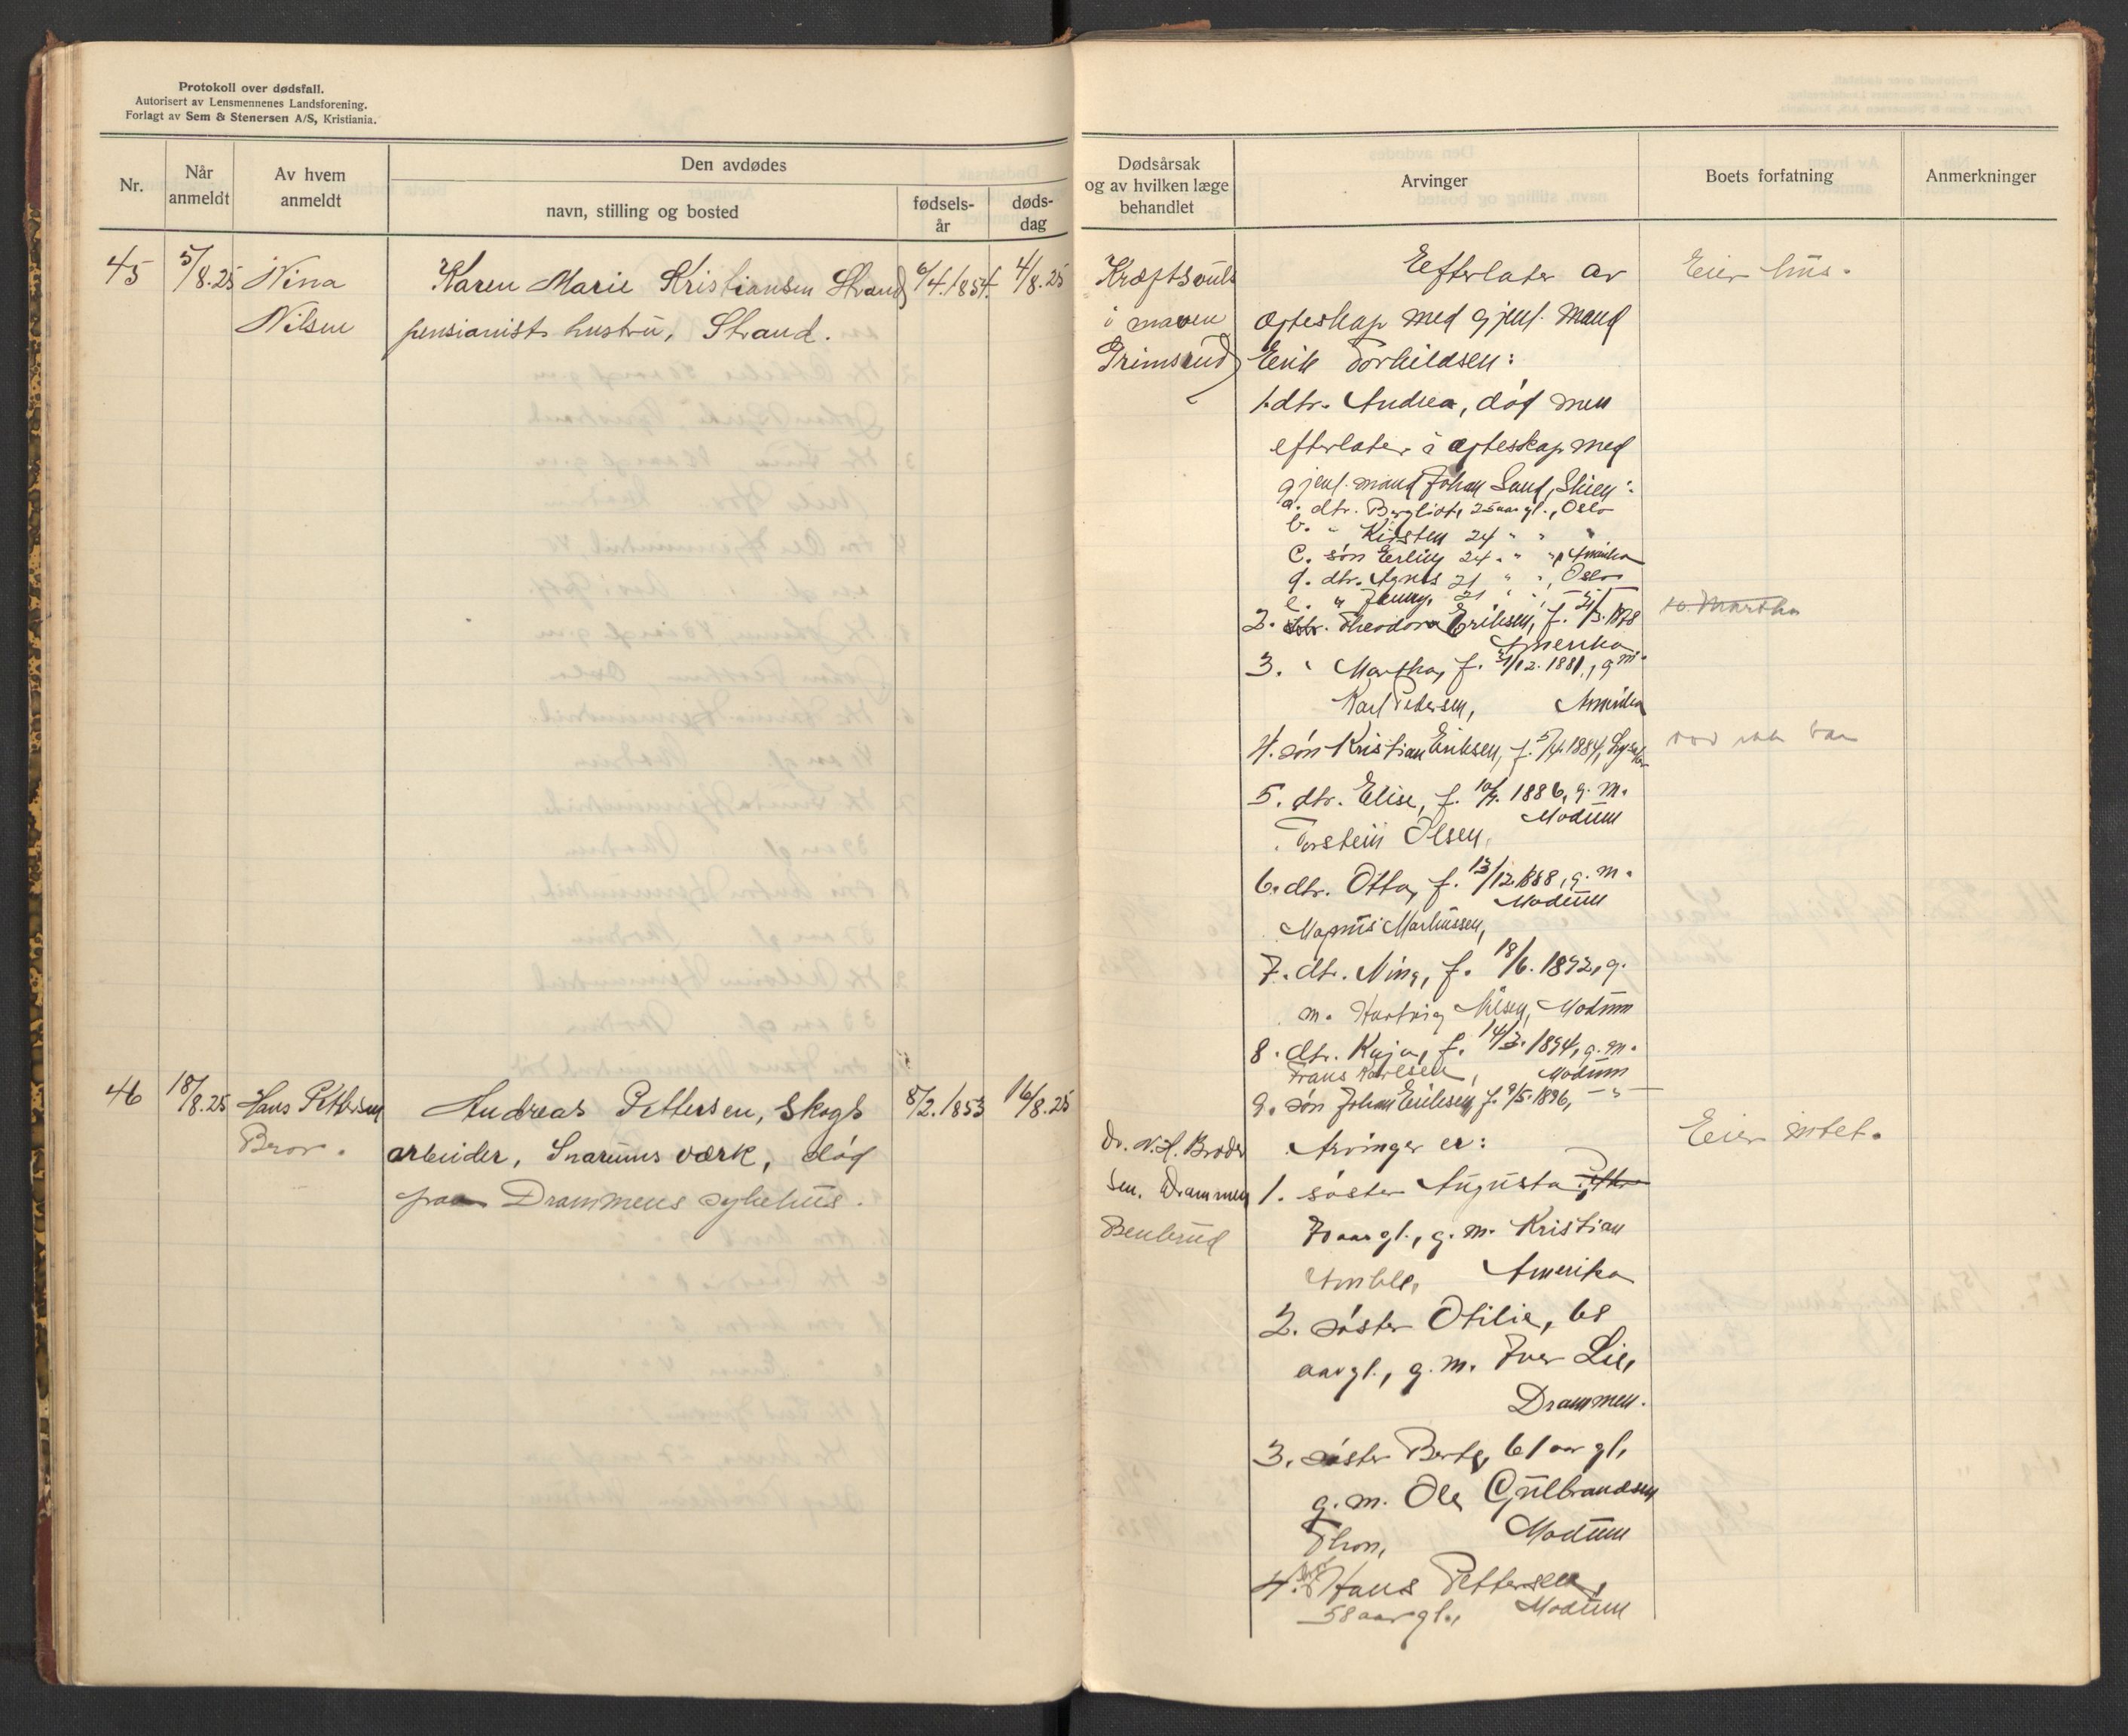 Protokoll over dødsfall.
Autorisert av Lensmennenes Landsforening.
Forlagt av Sem & Stenersen A/S, Kristiania.
Nr.
Når anmeldt
Av hvem anmeldt
Den avdødes
navn, stilling og bosted
fødselsår
dødsdag
Dødsårsak
og av hvilken læge
behandlet
Arvinger
Boets forfatning
Anmerkninger
45 5/8.25 Nina Karen Marie Kristiansen Strand 6/4.1854. 4/8.25
Nilsen pensianists hustru, Strand.
Kræftsvuls
i maven
Grimsrud
Eefterlater av
ægteskap med gjenl. mand
Eerik Torkildsen:
1. dtr. Andrea, død men
efterlater i ægteskap med
gjenl. mand Johan Sand, Skien:
a. dtr. Bergliot, 25 aar gl., Oslo
b. " Kirsten 24 " " "
c. søn Eerling 24 " ", Amerika
d. dtr. Agnes 21 " ", Oslo
e. " Jenny, 21 " ", — " —
2. dtr. Theodora Eriksen, f. 21/3.1878
Amerika
3. " Martha, f. 21/12.1881, g.m.
Karl Pedersen, Amerika
4. søn Kristian Eriksen, f. 5/4.1884, Lysaker
5. dtr. Elise, f. 10/7. 1886, g. m.
Modum
Torstein Olsen,
6. dtr. Otta, f. 13/12.1888, g. m.
Modum
Magnus Markussen,
7. dtr. Nina, f. 18/6. 1892, g.
m. Hartvig Nilsen, Modum
8. dtr. Kaja, f. 14/3. 1894, g. m.
Frans Karlsen, Modum
9. søn Johan Eriksen, f. 9/5.1896, — " —
Eier hus.
so. Martha
46 18/8.25 Hans Pettersen Andreas Pettersen, Skogs 8/2.1853 16/8.25
Bror. arbeider, Snarums værk, død
paa Drammens sykehus.
Dr. N. H. Broder
sen. Drammen
Arvinger er:
1. søster Augusta,
70 aar gl., g. m. Kristian
Amerika
2. søster Otilie, 68
aar gl., g. m. Iver Lie,
Drammen.
3. søster Berte, 61 aar gl,
g. m. Ole Gulbrandsen
Thon, Modum
4. bror Hans Pettersen,
58 aar gl., Modum
Eier intet.